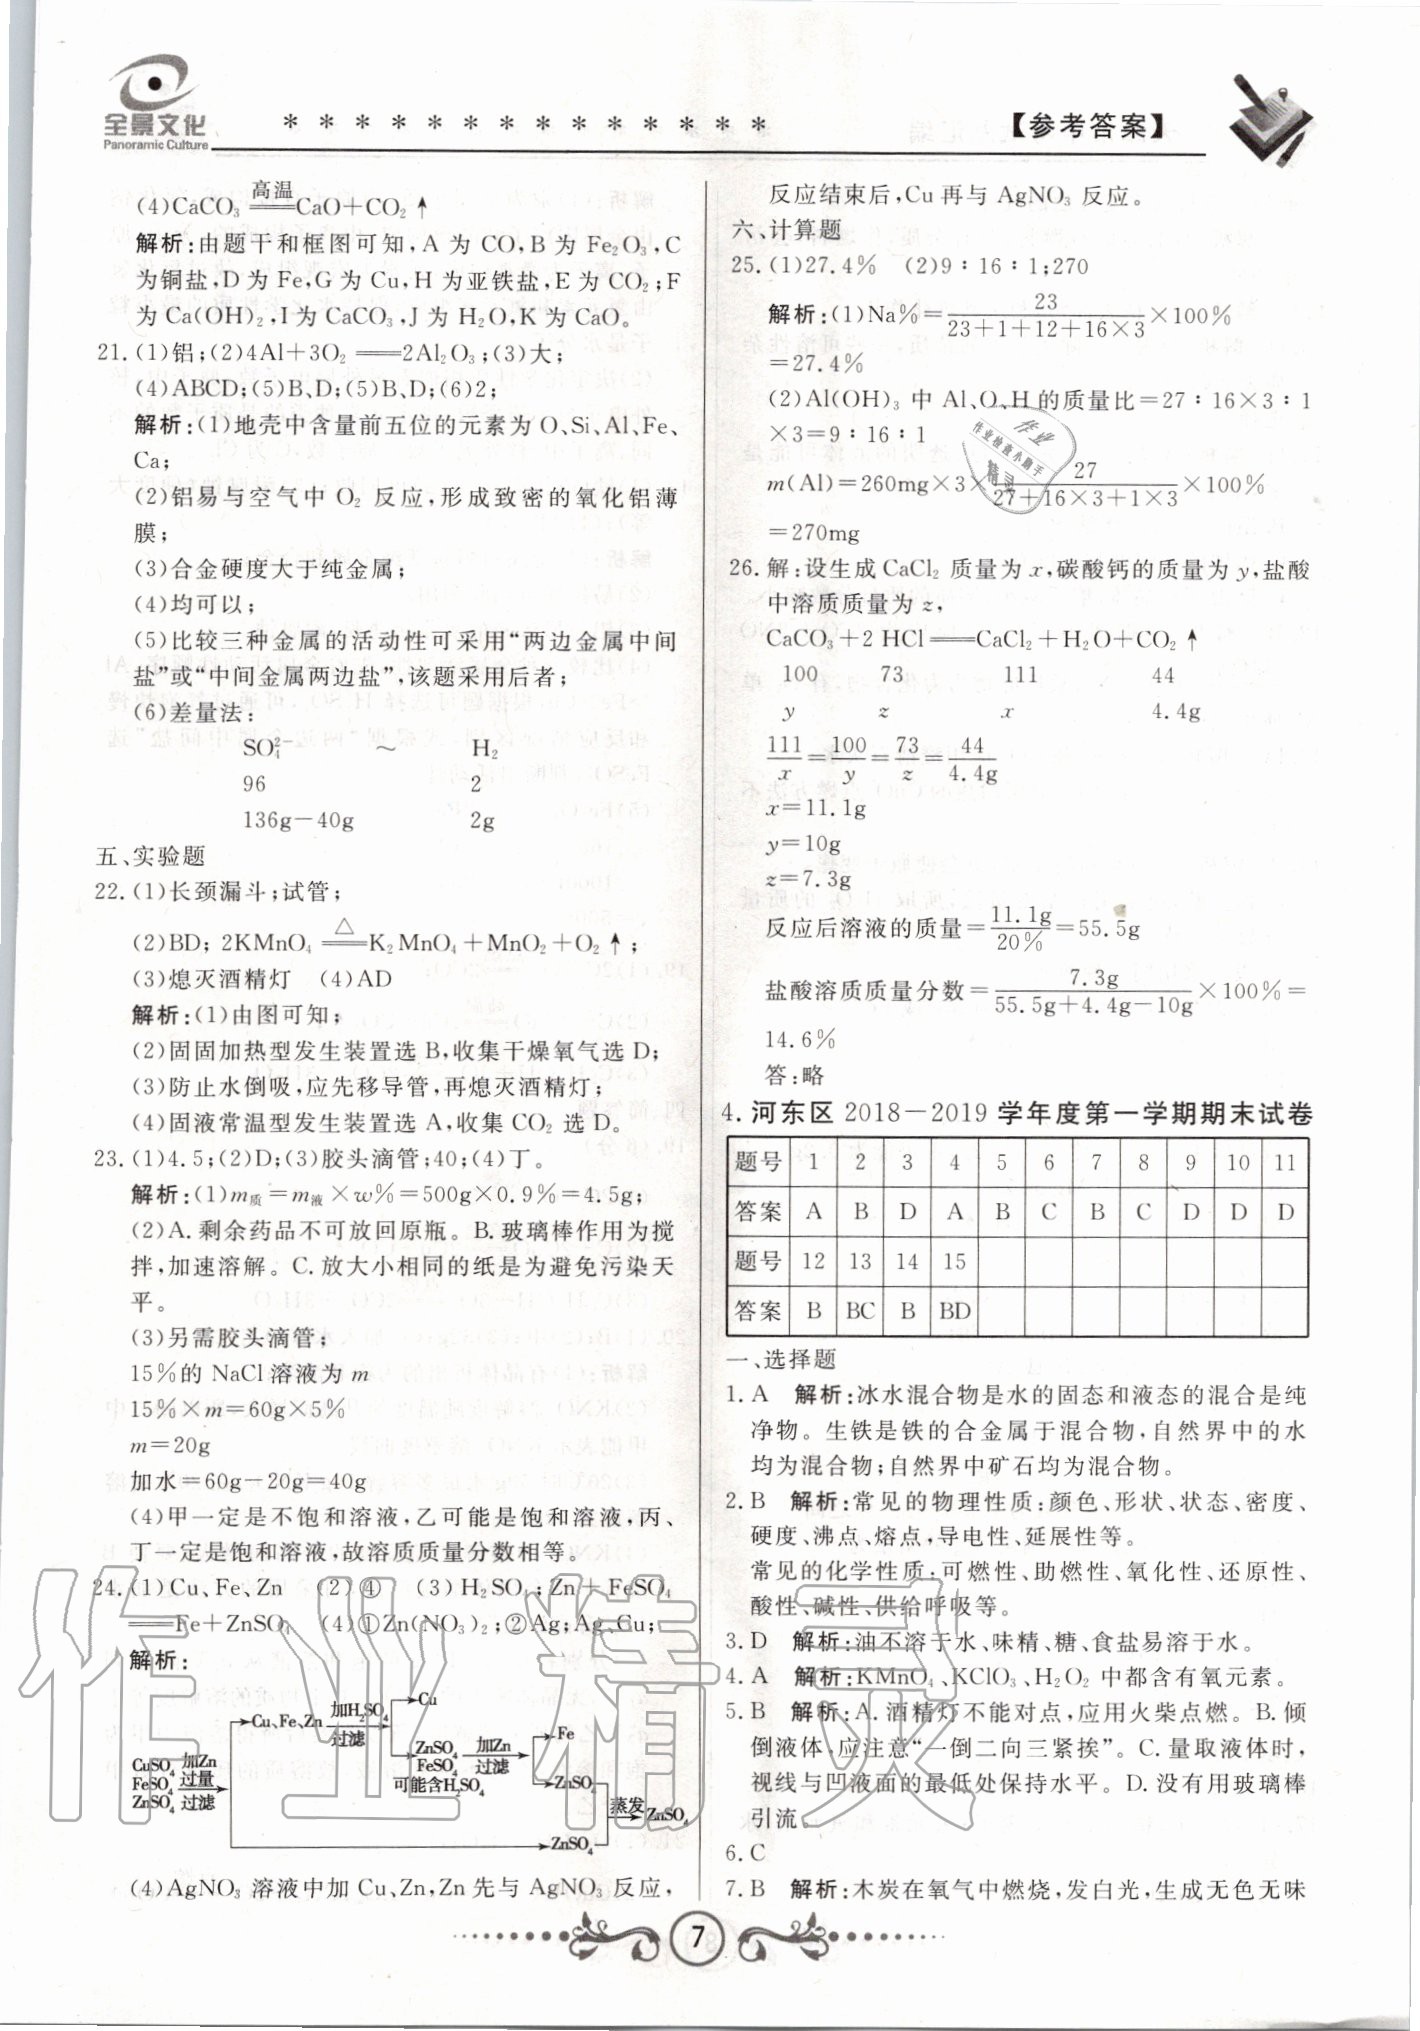 全景文化
Panoramic Culture
* * * * * * * * * * * * * *
【参考答案】
(4)CaCO₃ =高温= CaO+CO₂↑
解析:由题干和框图可知,A 为 CO,B 为 Fe₂O₃,C
为铜盐,D 为 Fe,G 为 Cu,H 为亚铁盐,E 为 CO₂;F
为 Ca(OH)₂,I 为 CaCO₃,J 为 H₂O,K 为 CaO。
21.(1)铝;(2)4Al+3O₂══2Al₂O₃;(3)大;
(4)ABCD;(5)B、D;(5)B、D;(6)2;
解析:(1)地壳中含量前五位的元素为 O、Si、Al、Fe、
Ca;
(2)铝易与空气中 O₂ 反应,形成致密的氧化铝薄
膜;
(3)合金硬度大于纯金属;
(4)均可以;
(5)比较三种金属的活动性可采用“两边金属中间
盐”或“中间金属两边盐”,该题采用后者;
(6)差量法:
SO₄²⁻ ～ H₂
96 2
136g−40g 2g
五、实验题
22.(1)长颈漏斗;试管;
(2)BD; 2KMnO₄ =△= K₂MnO₄+MnO₂+O₂↑;
(3)熄灭酒精灯 (4)AD
解析:(1)由图可知;
(2)固固加热型发生装置选 B,收集干燥氧气选 D;
(3)防止水倒吸,应先移导管,再熄灭酒精灯;
(4)固液常温型发生装置选 A,收集 CO₂ 选 D。
23.(1)4.5;(2)D;(3)胶头滴管;40;(4)丁。
解析:(1)m质=m液×w%=500g×0.9%=4.5g;
(2)A. 剩余药品不可放回原瓶。B. 玻璃棒作用为搅
拌,加速溶解。C. 放大小相同的纸是为避免污染天
平。
(3)另需胶头滴管;
15%的 NaCl 溶液为 m
15%×m=60g×5%
m=20g
加水=60g−20g=40g
(4)甲一定是不饱和溶液,乙可能是饱和溶液,丙、
丁一定是饱和溶液,故溶质质量分数相等。
24.(1)Cu、Fe、Zn (2)④ (3)H₂SO₄;Zn+FeSO₄
══Fe+ZnSO₄ (4)①Zn(NO₃)₂;②Ag;Ag、Cu;
解析:
CuSO₄
FeSO₄
ZnSO₄
加Zn
过量
过滤
Cu、Fe、Zn
加H₂SO₄
过滤
Cu
ZnSO₄
FeSO₄
可能含H₂SO₄
加Zn
过滤
Fe
ZnSO₄
ZnSO₄
蒸发
ZnSO₄
(4)AgNO₃ 溶液中加 Cu、Zn,Zn 先与 AgNO₃ 反应,
反应结束后,Cu 再与 AgNO₃ 反应。
六、计算题
25.(1)27.4% (2)9∶16∶1;270
解析:(1)Na%=23/(23+1+12+16×3)×100%
=27.4%
(2)Al(OH)₃ 中 Al、O、H 的质量比=27∶16×3∶1
×3=9∶16∶1
m(Al)=260mg×3×27/(27+16×3+1×3)×100%
=270mg
26. 解:设生成 CaCl₂ 质量为 x,碳酸钙的质量为 y,盐酸
中溶质质量为 z,
CaCO₃+2 HCl══CaCl₂+H₂O+CO₂↑
100 73 111 44
y z x 4.4g
111/x=100/y=73/z=44/4.4g
x=11.1g
y=10g
z=7.3g
反应后溶液的质量=11.1g/20%=55.5g
盐酸溶质质量分数=7.3g/(55.5g+4.4g−10g)×100%=
14.6%
答:略
4. 河东区 2018－2019 学年度第一学期期末试卷
题号 1 2 3 4 5 6 7 8 9 10 11
答案 A B D A B C B C D D D
题号 12 13 14 15
答案 B BC B BD
一、选择题
1. A 解析:冰水混合物是水的固态和液态的混合是纯
净物。生铁是铁的合金属于混合物,自然界中的水
均为混合物;自然界中矿石均为混合物。
2. B 解析:常见的物理性质:颜色、形状、状态、密度、
硬度、沸点、熔点,导电性、延展性等。
常见的化学性质:可燃性、助燃性、氧化性、还原性、
酸性、碱性、供给呼吸等。
3. D 解析:油不溶于水、味精、糖、食盐易溶于水。
4. A 解析:KMnO₄、KClO₃、H₂O₂ 中都含有氧元素。
5. B 解析:A. 酒精灯不能对点,应用火柴点燃。B. 倾
倒液体,应注意“一倒二向三紧挨”。C. 量取液体时,
视线与凹液面的最低处保持水平。D. 没有用玻璃棒
引流。
6. C
7. B 解析:木炭在氧气中燃烧,发白光,生成无色无味
7
作业精灵
作业
作业检查小助手
精灵